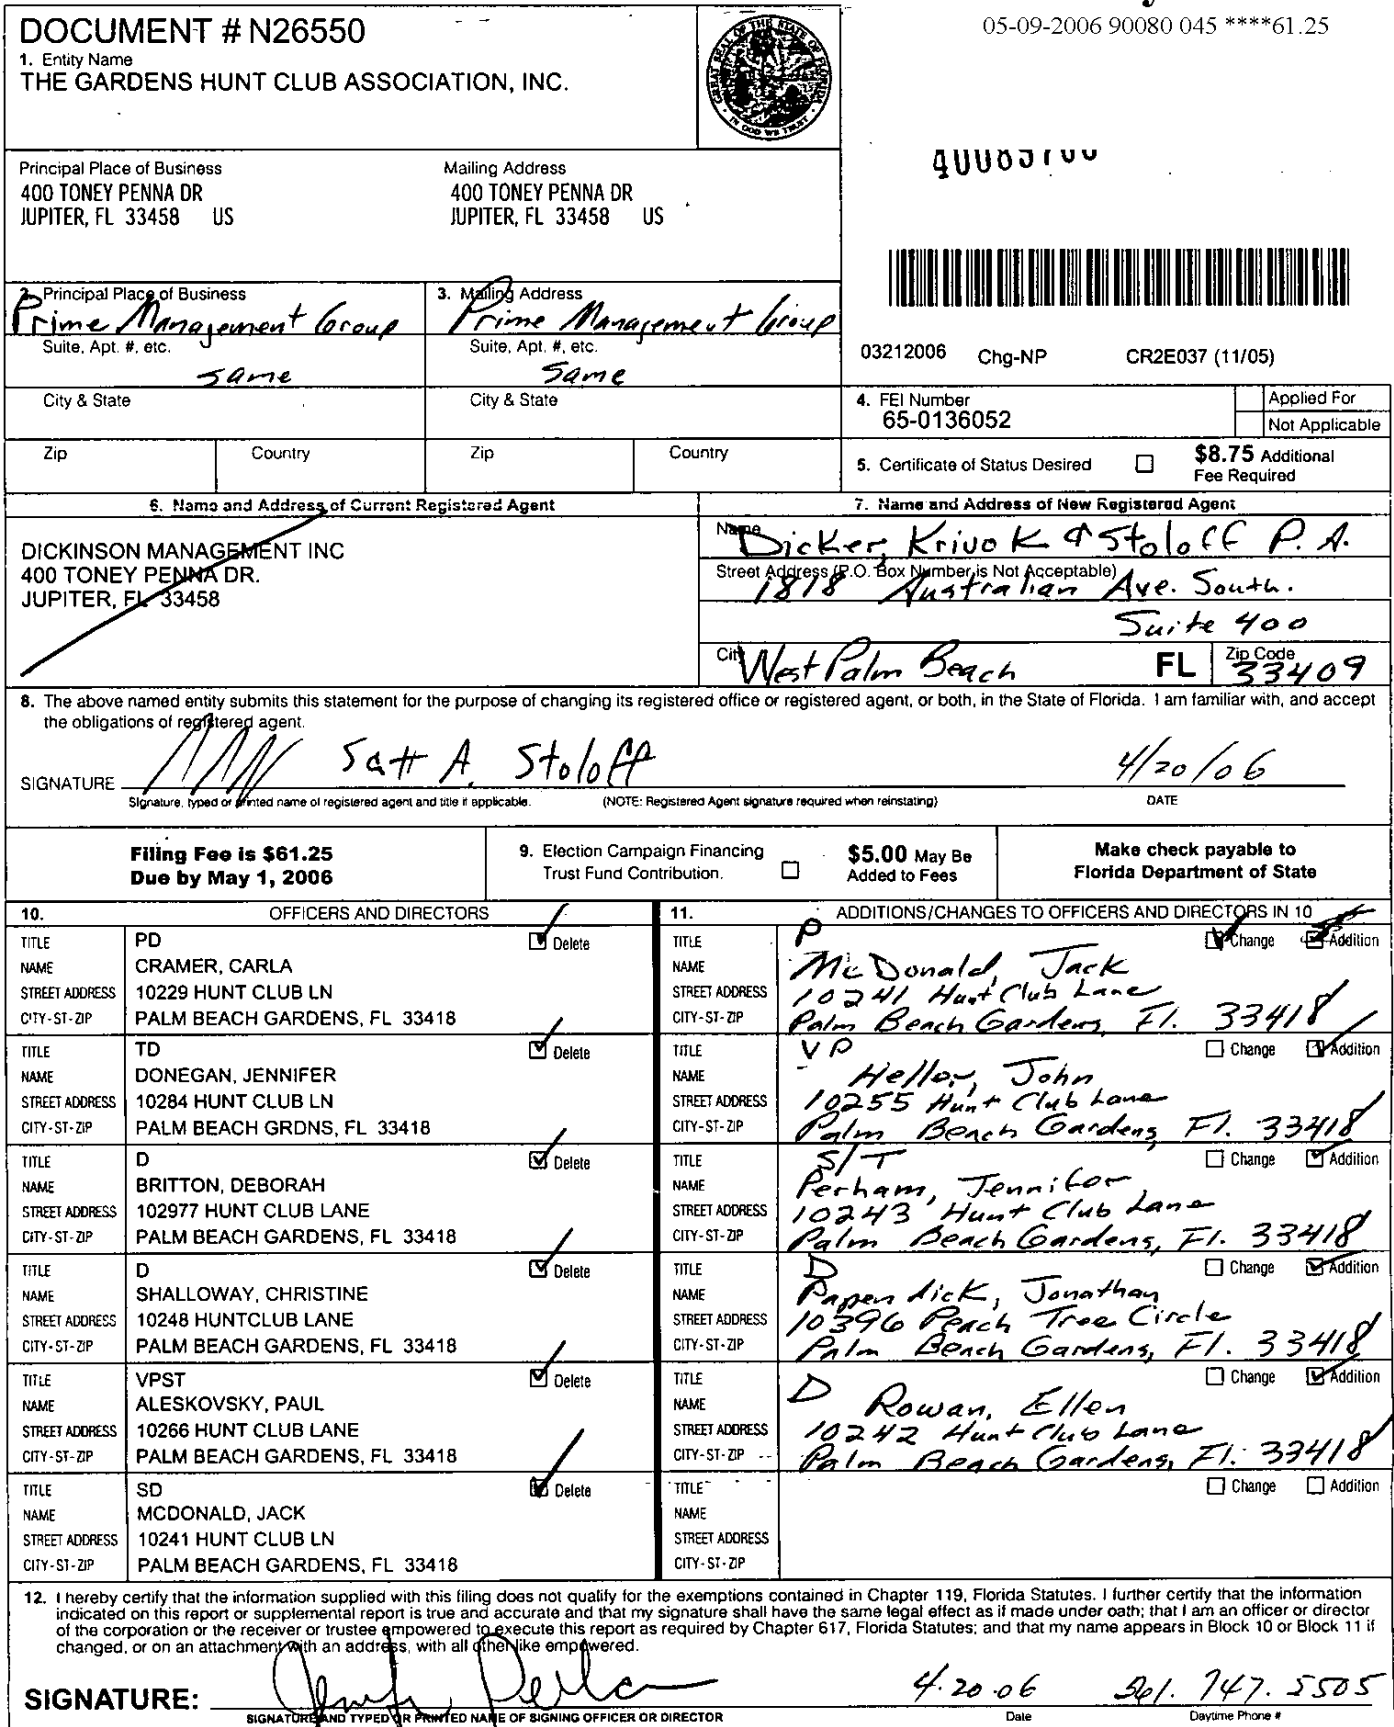 05-09-2006 90080 045 ****61.25
DOCUMENT # N26550
1. Entity Name
THE GARDENS HUNT CLUB ASSOCIATION, INC.
GREAT SEAL OF THE STATE OF FLORIDA
IN GOD WE TRUST
Principal Place of Business
400 TONEY PENNA DR
JUPITER, FL 33458 US
Mailing Address
400 TONEY PENNA DR
JUPITER, FL 33458 US
2. Principal Place of Business
Prime Management Group
Suite, Apt. #, etc.
same
City & State
Zip Country
3. Mailing Address
Prime Management Group
Suite, Apt. #, etc.
Same
City & State
Zip Country
03212006 Chg-NP CR2E037 (11/05)
4. FEI Number
65-0136052
Applied For
Not Applicable
5. Certificate of Status Desired
$8.75 Additional
Fee Required
6. Name and Address of Current Registered Agent
DICKINSON MANAGEMENT INC
400 TONEY PENNA DR.
JUPITER, FL 33458
7. Name and Address of New Registered Agent
Name
Dicker, Krivok & Stoloff P.A.
Street Address (P.O. Box Number is Not Acceptable)
1818 Australian Ave. South.
Suite 400
City West Palm Beach FL Zip Code 33409
8. The above named entity submits this statement for the purpose of changing its registered office or registered agent, or both, in the State of Florida. I am familiar with, and accept
the obligations of registered agent.
SIGNATURE Scott A. Stoloff 4/20/06
Signature, typed or printed name of registered agent and title if applicable. (NOTE: Registered Agent signature required when reinstating) DATE
Filing Fee is $61.25
Due by May 1, 2006
9. Election Campaign Financing
Trust Fund Contribution.
$5.00 May Be
Added to Fees
Make check payable to
Florida Department of State
10. OFFICERS AND DIRECTORS
TITLE PD Delete
NAME CRAMER, CARLA
STREET ADDRESS 10229 HUNT CLUB LN
CITY-ST-ZIP PALM BEACH GARDENS, FL 33418
TITLE TD Delete
NAME DONEGAN, JENNIFER
STREET ADDRESS 10284 HUNT CLUB LN
CITY-ST-ZIP PALM BEACH GRDNS, FL 33418
TITLE D Delete
NAME BRITTON, DEBORAH
STREET ADDRESS 102977 HUNT CLUB LANE
CITY-ST-ZIP PALM BEACH GARDENS, FL 33418
TITLE D Delete
NAME SHALLOWAY, CHRISTINE
STREET ADDRESS 10248 HUNTCLUB LANE
CITY-ST-ZIP PALM BEACH GARDENS, FL 33418
TITLE VPST Delete
NAME ALESKOVSKY, PAUL
STREET ADDRESS 10266 HUNT CLUB LANE
CITY-ST-ZIP PALM BEACH GARDENS, FL 33418
TITLE SD Delete
NAME MCDONALD, JACK
STREET ADDRESS 10241 HUNT CLUB LN
CITY-ST-ZIP PALM BEACH GARDENS, FL 33418
11. ADDITIONS/CHANGES TO OFFICERS AND DIRECTORS IN 10
TITLE P Change Addition
NAME McDonald, Jack
STREET ADDRESS 10241 Hunt Club Lane
CITY-ST-ZIP Palm Beach Gardens, Fl. 33418
TITLE VP Change Addition
NAME Heller, John
STREET ADDRESS 10255 Hunt Club Lane
CITY-ST-ZIP Palm Beach Gardens, Fl. 33418
TITLE S/T Change Addition
NAME Perham, Jennifer
STREET ADDRESS 10243 Hunt Club Lane
CITY-ST-ZIP Palm Beach Gardens, Fl. 33418
TITLE D Change Addition
NAME Papendick, Jonathan
STREET ADDRESS 10396 Peach Tree Circle
CITY-ST-ZIP Palm Beach Gardens, Fl. 33418
TITLE D Change Addition
NAME Rowan, Ellen
STREET ADDRESS 10242 Hunt Club Lane
CITY-ST-ZIP Palm Beach Gardens, Fl. 33418
TITLE Change Addition
NAME
STREET ADDRESS
CITY-ST-ZIP
12. I hereby certify that the information supplied with this filing does not qualify for the exemptions contained in Chapter 119, Florida Statutes. I further certify that the information
indicated on this report or supplemental report is true and accurate and that my signature shall have the same legal effect as if made under oath; that I am an officer or director
of the corporation or the receiver or trustee empowered to execute this report as required by Chapter 617, Florida Statutes; and that my name appears in Block 10 or Block 11 if
changed, or on an attachment with an address, with all other like empowered.
SIGNATURE: 4.20.06 561.747.5505
SIGNATURE AND TYPED OR PRINTED NAME OF SIGNING OFFICER OR DIRECTOR Date Daytime Phone #